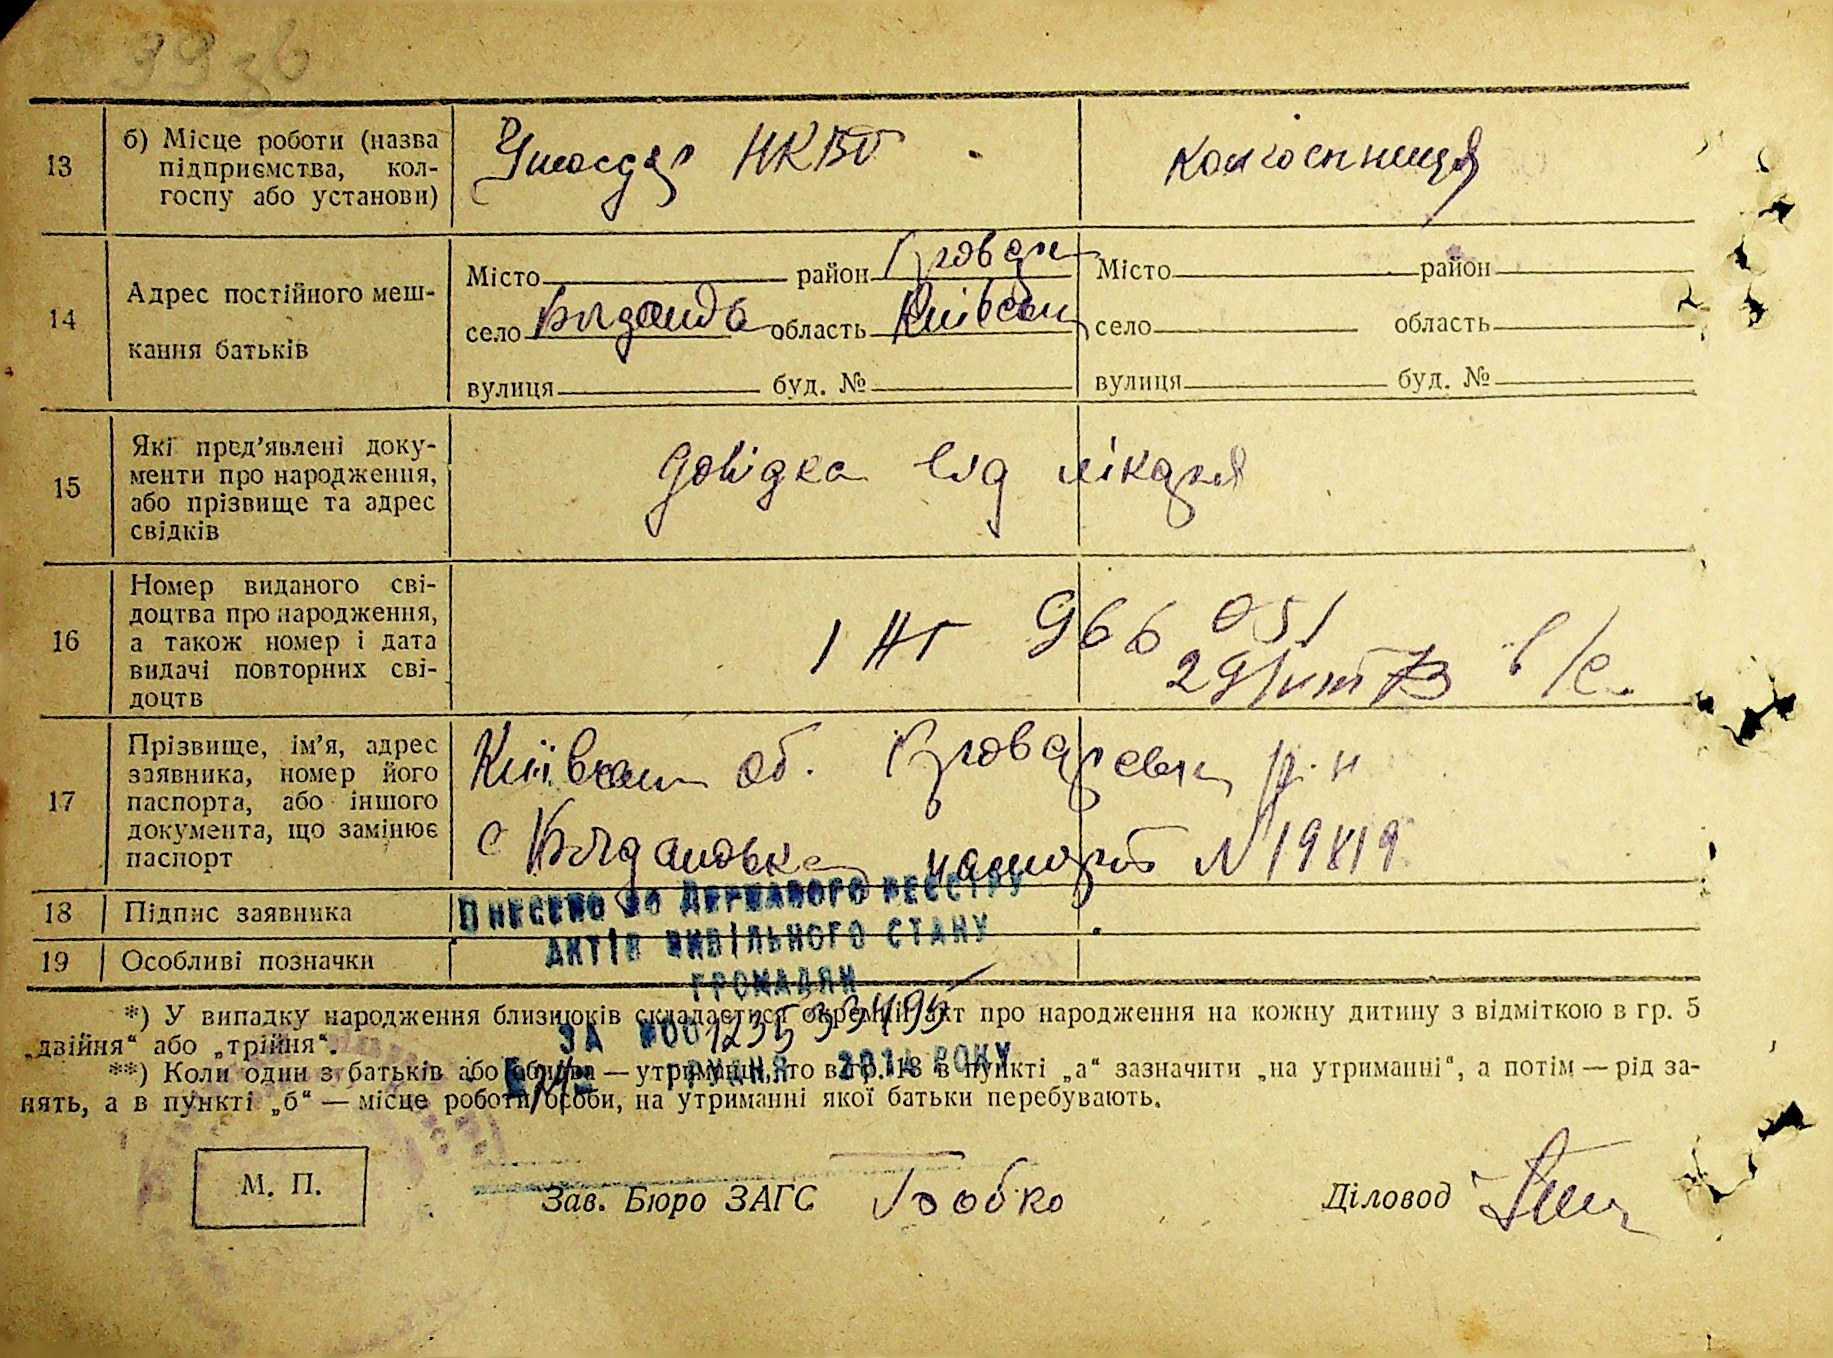 13
б) Місце роботи (назва
підприємства, кол-
госпу або установи)
НКВД
колгоспниця
14
Адрес постійного меш-
кання батьків
Місто район Бровар
село Богданов область Київськ
вулиця буд. №
Місто район
село область
вулиця буд. №
15
Які пред'явлені доку-
менти про народження,
або прізвище та адрес
свідків
Довідка від лікаря
16
Номер виданого сві-
доцтва про народження,
а також номер і дата
видачі повторних сві-
доцтв
966 051
17
Прізвище, ім'я, адрес
заявника, номер його
паспорта, або іншого
документа, що замінює
паспорт
Київськ об. Броварськ р-н
с Богдановка пашпорт N
18
Підпис заявника
19
Особливі позначки
ВНЕСЕНО ДО ДЕРЖАВНОГО РЕЄСТРУ
АКТІВ ЦИВІЛЬНОГО СТАНУ
ГРОМАДЯН
*) У випадку народження близнюків складається окремий акт про народження на кожну дитину з відміткою в гр. 5
„двійня“ або „трійня“.
ЗА №001235
ГРУДНЯ 2014 РОКУ
**) Коли один з батьків або обидва — утриманці, то в гр. 13 в пункті „а“ зазначити „на утриманні“, а потім — рід за-
нять, а в пункті „б“ — місце роботи особи, на утриманні якої батьки перебувають.
М. П.
Зав. Бюро ЗАГС Бобко
Діловод